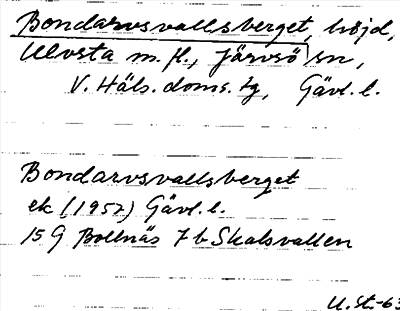 Bondarvsvallsberget, höjd,
Ulvsta m.fl., Järvsö sn,
V. Häls. doms. tg, Gävl. l.
Bondarvsvallsberget
ek (1957) Gävl. l.
15G Bollnäs 7b Skalsvallen
U.St.-63